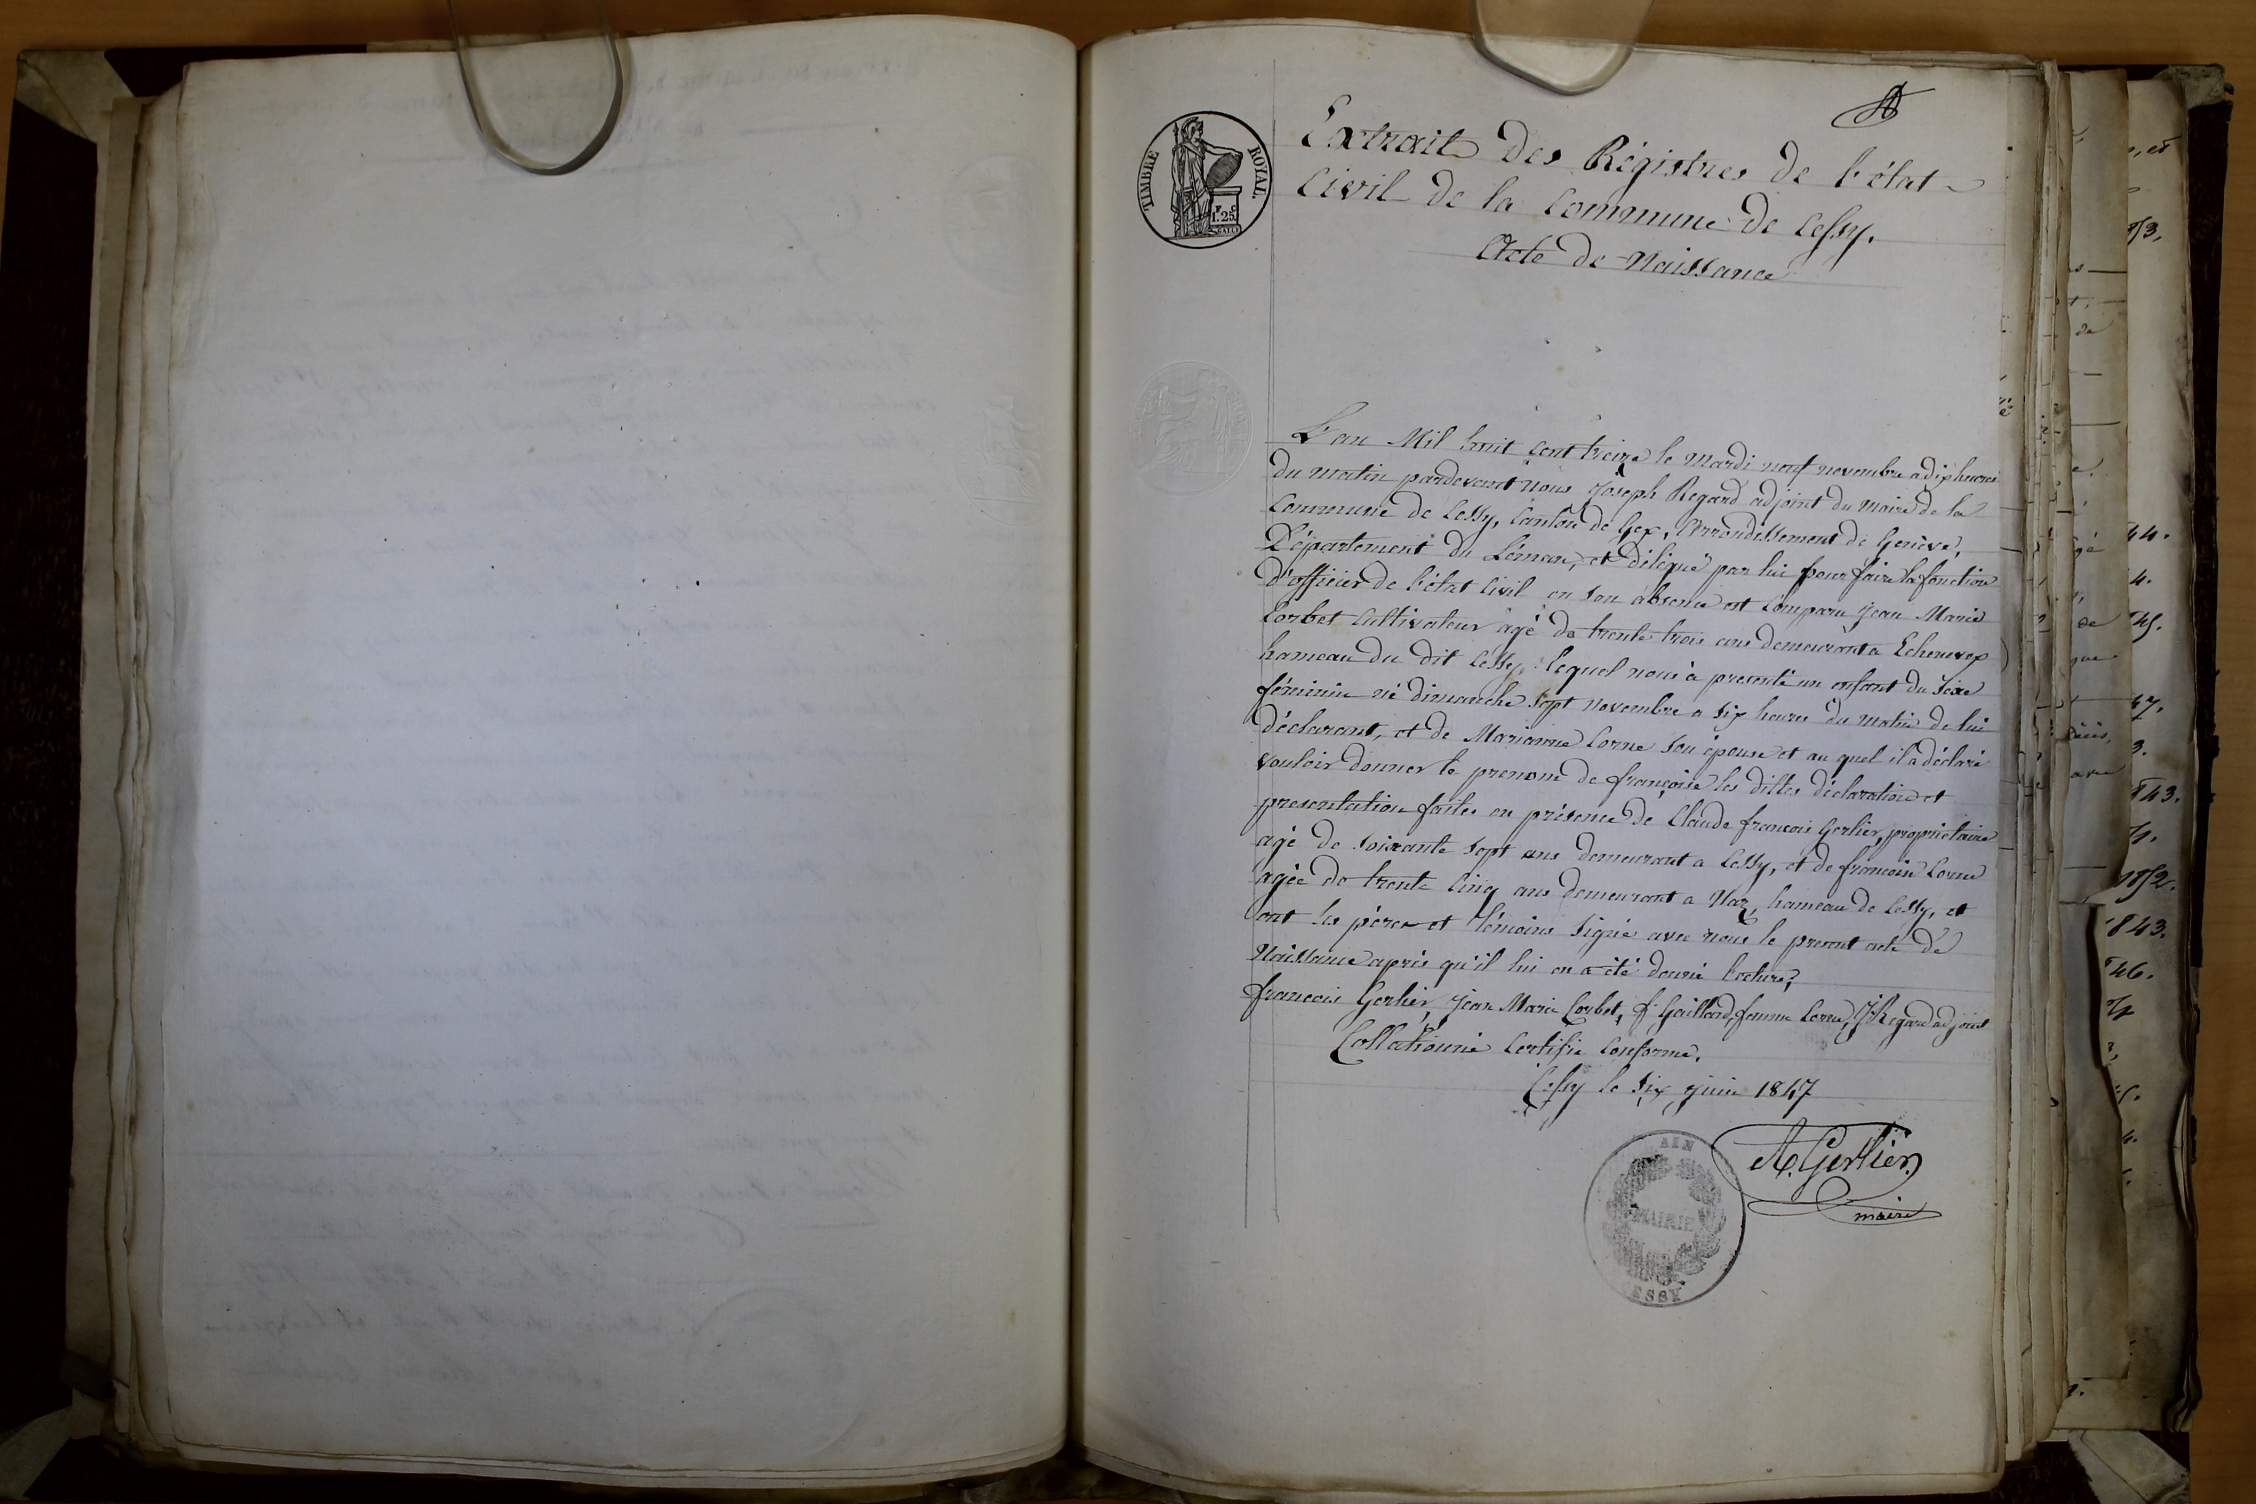 TIMBRE ROYAL.
F C
1.25
Extrait des Régistres de l'état
Civil de la Commune de Cessy.
Acte de Naissance
L'an Mil huit cent treize le Mardi neuf novembre a dix heures
du matin pardevant nous Joseph Regard adjoint du maire de la
Commune de Cessy, Canton de Gex, Arrondissement de Genève,
Département du Léman, et délégué par lui pour faire la fonction
d'officier de l'état Civil en son absence est comparu Jean Marie
Corbet Cultivateur agé de trente trois ans demeurant a Echenevex
hameau du dit Cessy, lequel nous à presenté un enfant du sexe
féminin né dimanche sept novembre a six heures du matin de lui
déclarant, et de Marianne Corne son épouse et au quel il a déclaré
vouloir donner le prenom de françoise les dittes déclaration et
presentation faites en présence de Claude francois Gerlier, propriétaire
agé de soixante sept ans demeurant a Cessy, et de francoise Corne
agée de trente cinq ans demeurant a Naz, hameau de Cessy, et
ont les pères et témoins signé avec nous le present acte de
Naissance après qu'il lui en a été donné lecture,
francois Gerlier, Jean Marie Corbet, f. Gaillard, femme Corne, J. Regard adjoint
Collationné Certifié Conforme.
Cessy le Six juin 1847
A. Gerlier
maire
AIN
MAIRIE
CESSY